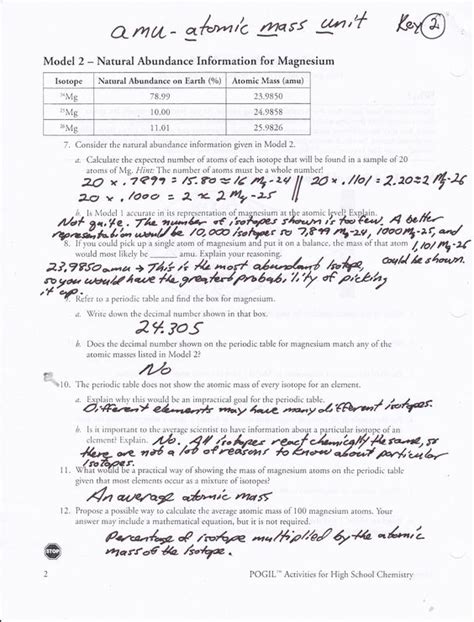 amu - atomic mass unit Key 2
Model 2 – Natural Abundance Information for Magnesium
Isotope Natural Abundance on Earth (%) Atomic Mass (amu)
²⁴Mg 78.99 23.9850
²⁵Mg 10.00 24.9858
²⁶Mg 11.01 25.9826
7. Consider the natural abundance information given in Model 2.
a. Calculate the expected number of atoms of each isotope that will be found in a sample of 20
atoms of Mg. Hint: The number of atoms must be a whole number!
20 x .7899 = 15.80 ≈ 16 Mg-24 || 20 x .1101 = 2.20 ≈ 2 Mg-26
20 x .1000 = 2 x 2 Mg-25
b. Is Model 1 accurate in its representation of magnesium at the atomic level? Explain.
Not quite. The number of isotopes shown is too few. A better
representation would be 10,000 isotopes so 7,899 Mg-24, 1000 Mg-25, and
1,101 Mg-26
could be shown.
8. If you could pick up a single atom of magnesium and put it on a balance, the mass of that atom
would most likely be ______ amu. Explain your reasoning.
23.9850 amu → This is the most abundant isotope,
so you would have the greatest probability of picking
it up.
9. Refer to a periodic table and find the box for magnesium.
a. Write down the decimal number shown in that box.
24.305
b. Does the decimal number shown on the periodic table for magnesium match any of the
atomic masses listed in Model 2?
No
10. The periodic table does not show the atomic mass of every isotope for an element.
a. Explain why this would be an impractical goal for the periodic table.
Different elements may have many different isotopes.
b. Is it important to the average scientist to have information about a particular isotope of an
element? Explain. No. All isotopes react chemically the same, so
there are not a lot of reasons to know about particular
isotopes.
11. What would be a practical way of showing the mass of magnesium atoms on the periodic table
given that most elements occur as a mixture of isotopes?
An average atomic mass
12. Propose a possible way to calculate the average atomic mass of 100 magnesium atoms. Your
answer may include a mathematical equation, but it is not required.
Percentage of isotope multiplied by the atomic
mass of the isotope.
STOP
2 POGIL™ Activities for High School Chemistry